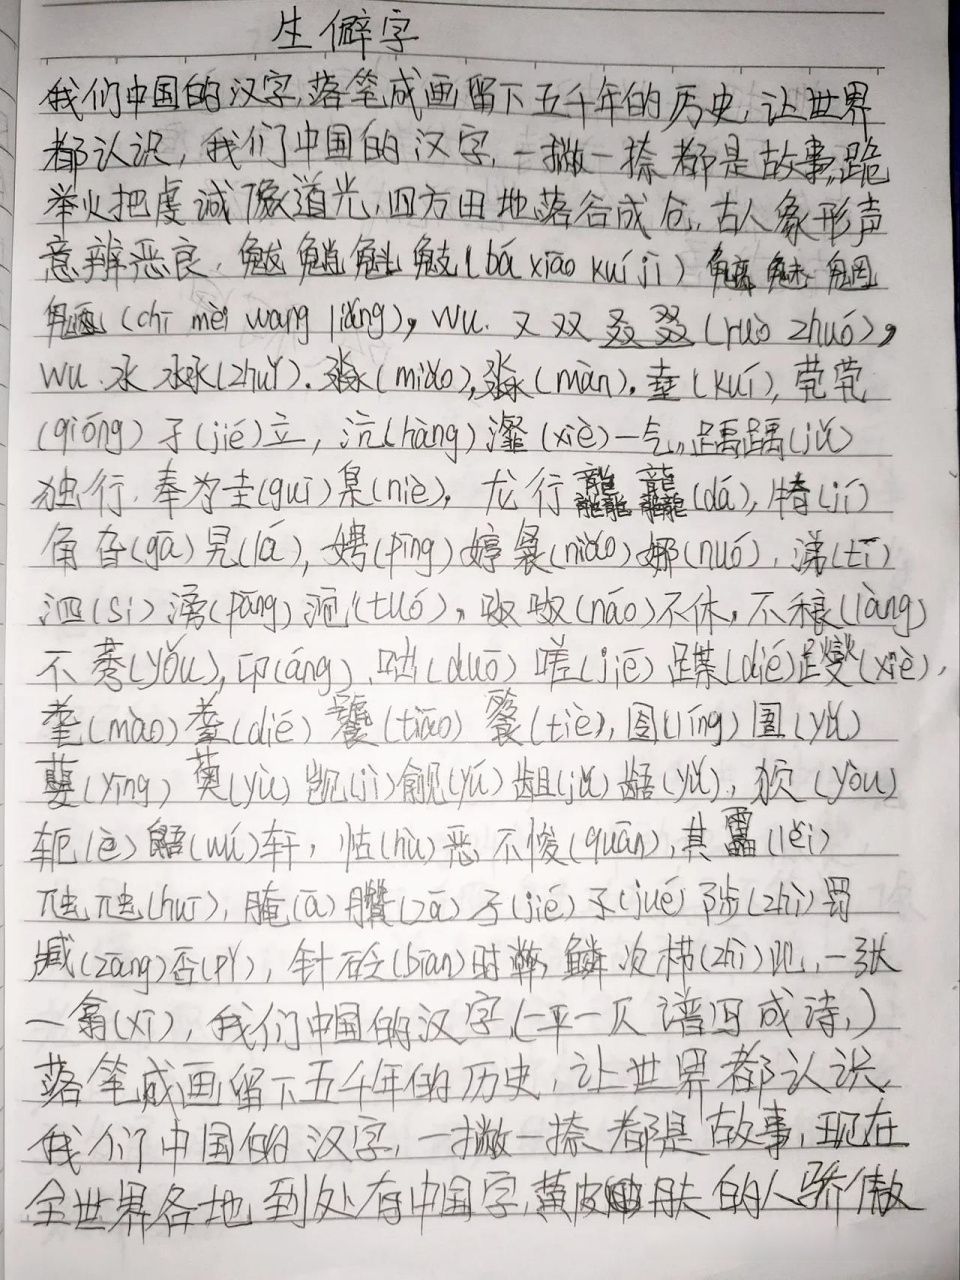 生僻字
我们中国的汉字,落笔成画留下五千年的历史,让世界
都认识,我们中国的汉字,一撇一捺都是故事,跪
举火把虔诚像道光,四方田地落谷成仓,古人象形声
意辨恶良.魃魈魁鬾(bá xiāo kuí jì)魑魅魍
魉(chī mèi wang liǎng),wu.又双叒叕(ruò zhuó),
wu.水沝(zhuǐ).淼(miǎo),㵘(màn).㙓(kuí),茕茕
(qióng)孑(jié)立,沆(hàng)瀣(xiè)一气,踽踽(jǔ)
独行.奉为圭(guī)臬(niè),龙行龘龘(dá),犄(jī)
角旮(gā)旯(lá),娉(pīng)婷袅(niǎo)娜(nuó),涕(tī)
泗(sì)滂(pāng)沱(tuó),呶呶(náo)不休,不稂(láng)
不莠(yǒu),卬(áng),咄(duō)嗟(jiē)蹀(dié)躞(xiè),
耄(mào)耋(dié)饕(tiāo)餮(tiè),囹(líng)圄(yǔ)
蘡(yīng)薁(yù)觊(jì)觎(yú)龃(jǔ)龉(yǔ),狖(yòu)
轭(è)鼯(wú)轩,怙(hù)恶不悛(quān),其靁(léi)
虺虺(huī),腌(ā)臢(zā)孑(jié)孓(jué)陟(zhì)罚
臧(zāng)否(pǐ),针砭(biān)时弊,鳞次栉(zhì)比,一张
一翕(xī),我们中国的汉字,(一平一仄谱写成诗,)
落笔成画留下五千年的历史,让世界都认识,
我们中国的汉字,一撇一捺都是故事,现在
全世界各地到处有中国字,黄皮肤的人骄傲